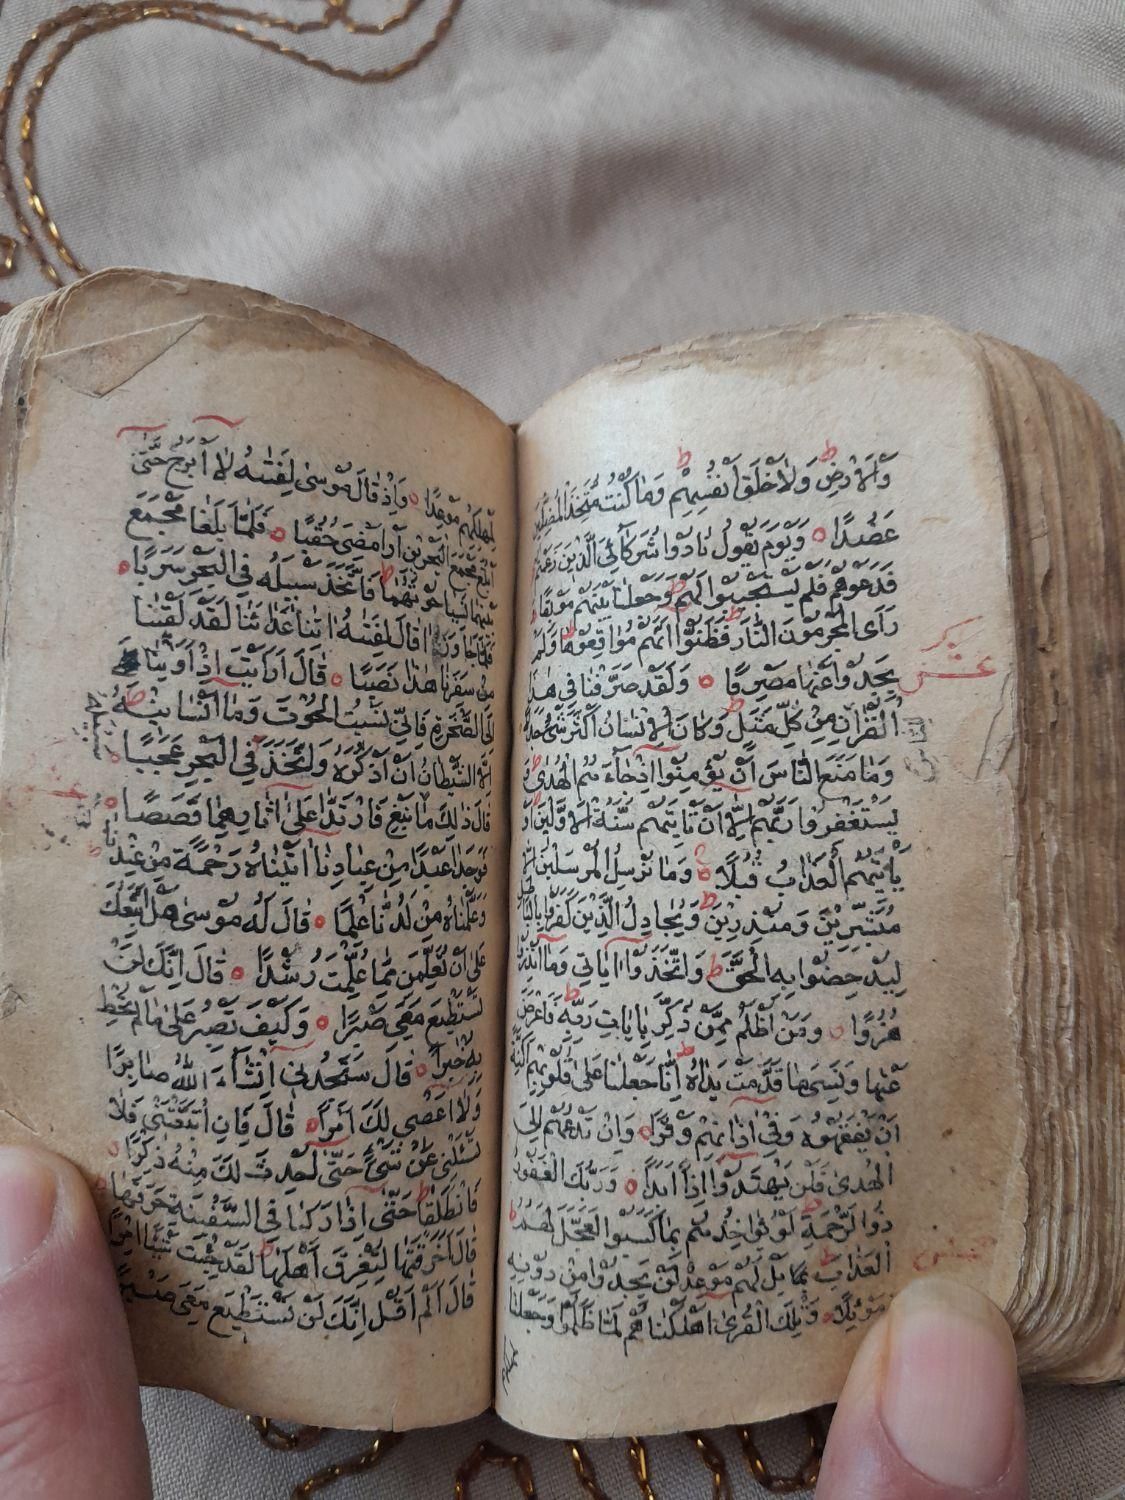 وَالْاَرْضِ وَلَا خَلْقَ اَنْفُسِهِمْ وَمَا كُنْتُ مُتَّخِذَ الْمُضِلّ۪ينَ
عَضُدًا وَيَوْمَ يَقُولُ نَادُوا شُرَكَآئِيَ الَّذ۪ينَ زَعَمْتُمْ
فَدَعَوْهُمْ فَلَمْ يَسْتَج۪يبُوا لَهُمْ وَجَعَلْنَا بَيْنَهُمْ مَوْبِقًا
رَاَى الْمُجْرِمُونَ النَّارَ فَظَنُّوا اَنَّهُمْ مُوَاقِعُوهَا وَلَمْ
يَجِدُوا عَنْهَا مَصْرِفًا وَلَقَدْ صَرَّفْنَا ف۪ي هٰذَا
الْقُرْاٰنِ مِنْ كُلِّ مَثَلٍ وَكَانَ الْاِنْسَانُ اَكْثَرَ شَيْءٍ جَدَلًا
وَمَا مَنَعَ النَّاسَ اَنْ يُؤْمِنُوا اِذْ جَآءَهُمُ الْهُدٰى وَ
يَسْتَغْفِرُوا رَبَّهُمْ اِلَّا اَنْ تَاْتِيَهُمْ سُنَّةُ الْاَوَّل۪ينَ اَوْ
يَاْتِيَهُمُ الْعَذَابُ قُبُلًا وَمَا نُرْسِلُ الْمُرْسَل۪ينَ اِلَّا
مُبَشِّر۪ينَ وَمُنْذِر۪ينَ وَيُجَادِلُ الَّذ۪ينَ كَفَرُوا بِالْبَاطِلِ
لِيُدْحِضُوا بِهِ الْحَقَّ وَاتَّخَذُوا اٰيَات۪ي وَمَا اُنْذِرُوا
هُزُوًا وَمَنْ اَظْلَمُ مِمَّنْ ذُكِّرَ بِاٰيَاتِ رَبِّه۪ فَاَعْرَضَ
عَنْهَا وَنَسِيَ مَا قَدَّمَتْ يَدَاهُ اِنَّا جَعَلْنَا عَلٰى قُلُوبِهِمْ اَكِنَّةً
اَنْ يَفْقَهُوهُ وَف۪ي اٰذَانِهِمْ وَقْرًا وَاِنْ تَدْعُهُمْ اِلَى
الْهُدٰى فَلَنْ يَهْتَدُوا اِذًا اَبَدًا وَرَبُّكَ الْغَفُورُ
ذُو الرَّحْمَةِ لَوْ يُؤَاخِذُهُمْ بِمَا كَسَبُوا لَعَجَّلَ لَهُمُ
الْعَذَابَ بَلْ لَهُمْ مَوْعِدٌ لَنْ يَجِدُوا مِنْ دُونِه۪
مَوْئِلًا وَتِلْكَ الْقُرٰى اَهْلَكْنَاهُمْ لَمَّا ظَلَمُوا وَجَعَلْنَا
لمهلكهم
لِمَهْلِكِهِمْ مَوْعِدًا وَاِذْ قَالَ مُوسٰى لِفَتٰيهُ لَا اَبْرَحُ حَتّٰى
اَبْلُغَ مَجْمَعَ الْبَحْرَيْنِ اَوْ اَمْضِيَ حُقُبًا فَلَمَّا بَلَغَا مَجْمَعَ
بَيْنِهِمَا نَسِيَا حُوتَهُمَا فَاتَّخَذَ سَب۪يلَهُ فِي الْبَحْرِ سَرَبًا
فَلَمَّا جَاوَزَا قَالَ لِفَتٰيهُ اٰتِنَا غَدَآءَنَا لَقَدْ لَق۪ينَا
مِنْ سَفَرِنَا هٰذَا نَصَبًا قَالَ اَرَاَيْتَ اِذْ اَوَيْنَا
اِلَى الصَّخْرَةِ فَاِنّ۪ي نَس۪يتُ الْحُوتَ وَمَا اَنْسَان۪يهُ
اِلَّا الشَّيْطَانُ اَنْ اَذْكُرَهُ وَاتَّخَذَ فِي الْبَحْرِ عَجَبًا
قَالَ ذٰلِكَ مَا نَبْغِ فَارْتَدَّا عَلٰى اٰثَارِهِمَا قَصَصًا
فَوَجَدَا عَبْدًا مِنْ عِبَادِنَا اٰتَيْنَاهُ رَحْمَةً مِنْ عِنْدِنَا
وَعَلَّمْنَاهُ مِنْ لَدُنَّا عِلْمًا قَالَ لَهُ مُوسٰى هَلْ اَتَّبِعُكَ
عَلٰى اَنْ تُعَلِّمَنِ مِمَّا عُلِّمْتَ رُشْدًا قَالَ اِنَّكَ لَنْ
تَسْتَط۪يعَ مَعِيَ صَبْرًا وَكَيْفَ تَصْبِرُ عَلٰى مَا لَمْ تُحِطْ
بِه۪ خُبْرًا قَالَ سَتَجِدُن۪ي اِنْشَآءَ اللّٰهُ صَابِرًا
وَلَا اَعْص۪ي لَكَ اَمْرًا قَالَ فَاِنِ اتَّبَعْتَن۪ي فَلَا
تَسْئَلْن۪ي عَنْ شَيْءٍ حَتّٰى اُحْدِثَ لَكَ مِنْهُ ذِكْرًا
فَانْطَلَقَا حَتّٰى اِذَا رَكِبَا فِي السَّف۪ينَةِ خَرَقَهَا
قَالَ اَخَرَقْتَهَا لِتُغْرِقَ اَهْلَهَا لَقَدْ جِئْتَ شَيْئًا اِمْرًا
قَالَ اَلَمْ اَقُلْ اِنَّكَ لَنْ تَسْتَط۪يعَ مَعِيَ صَبْرًا